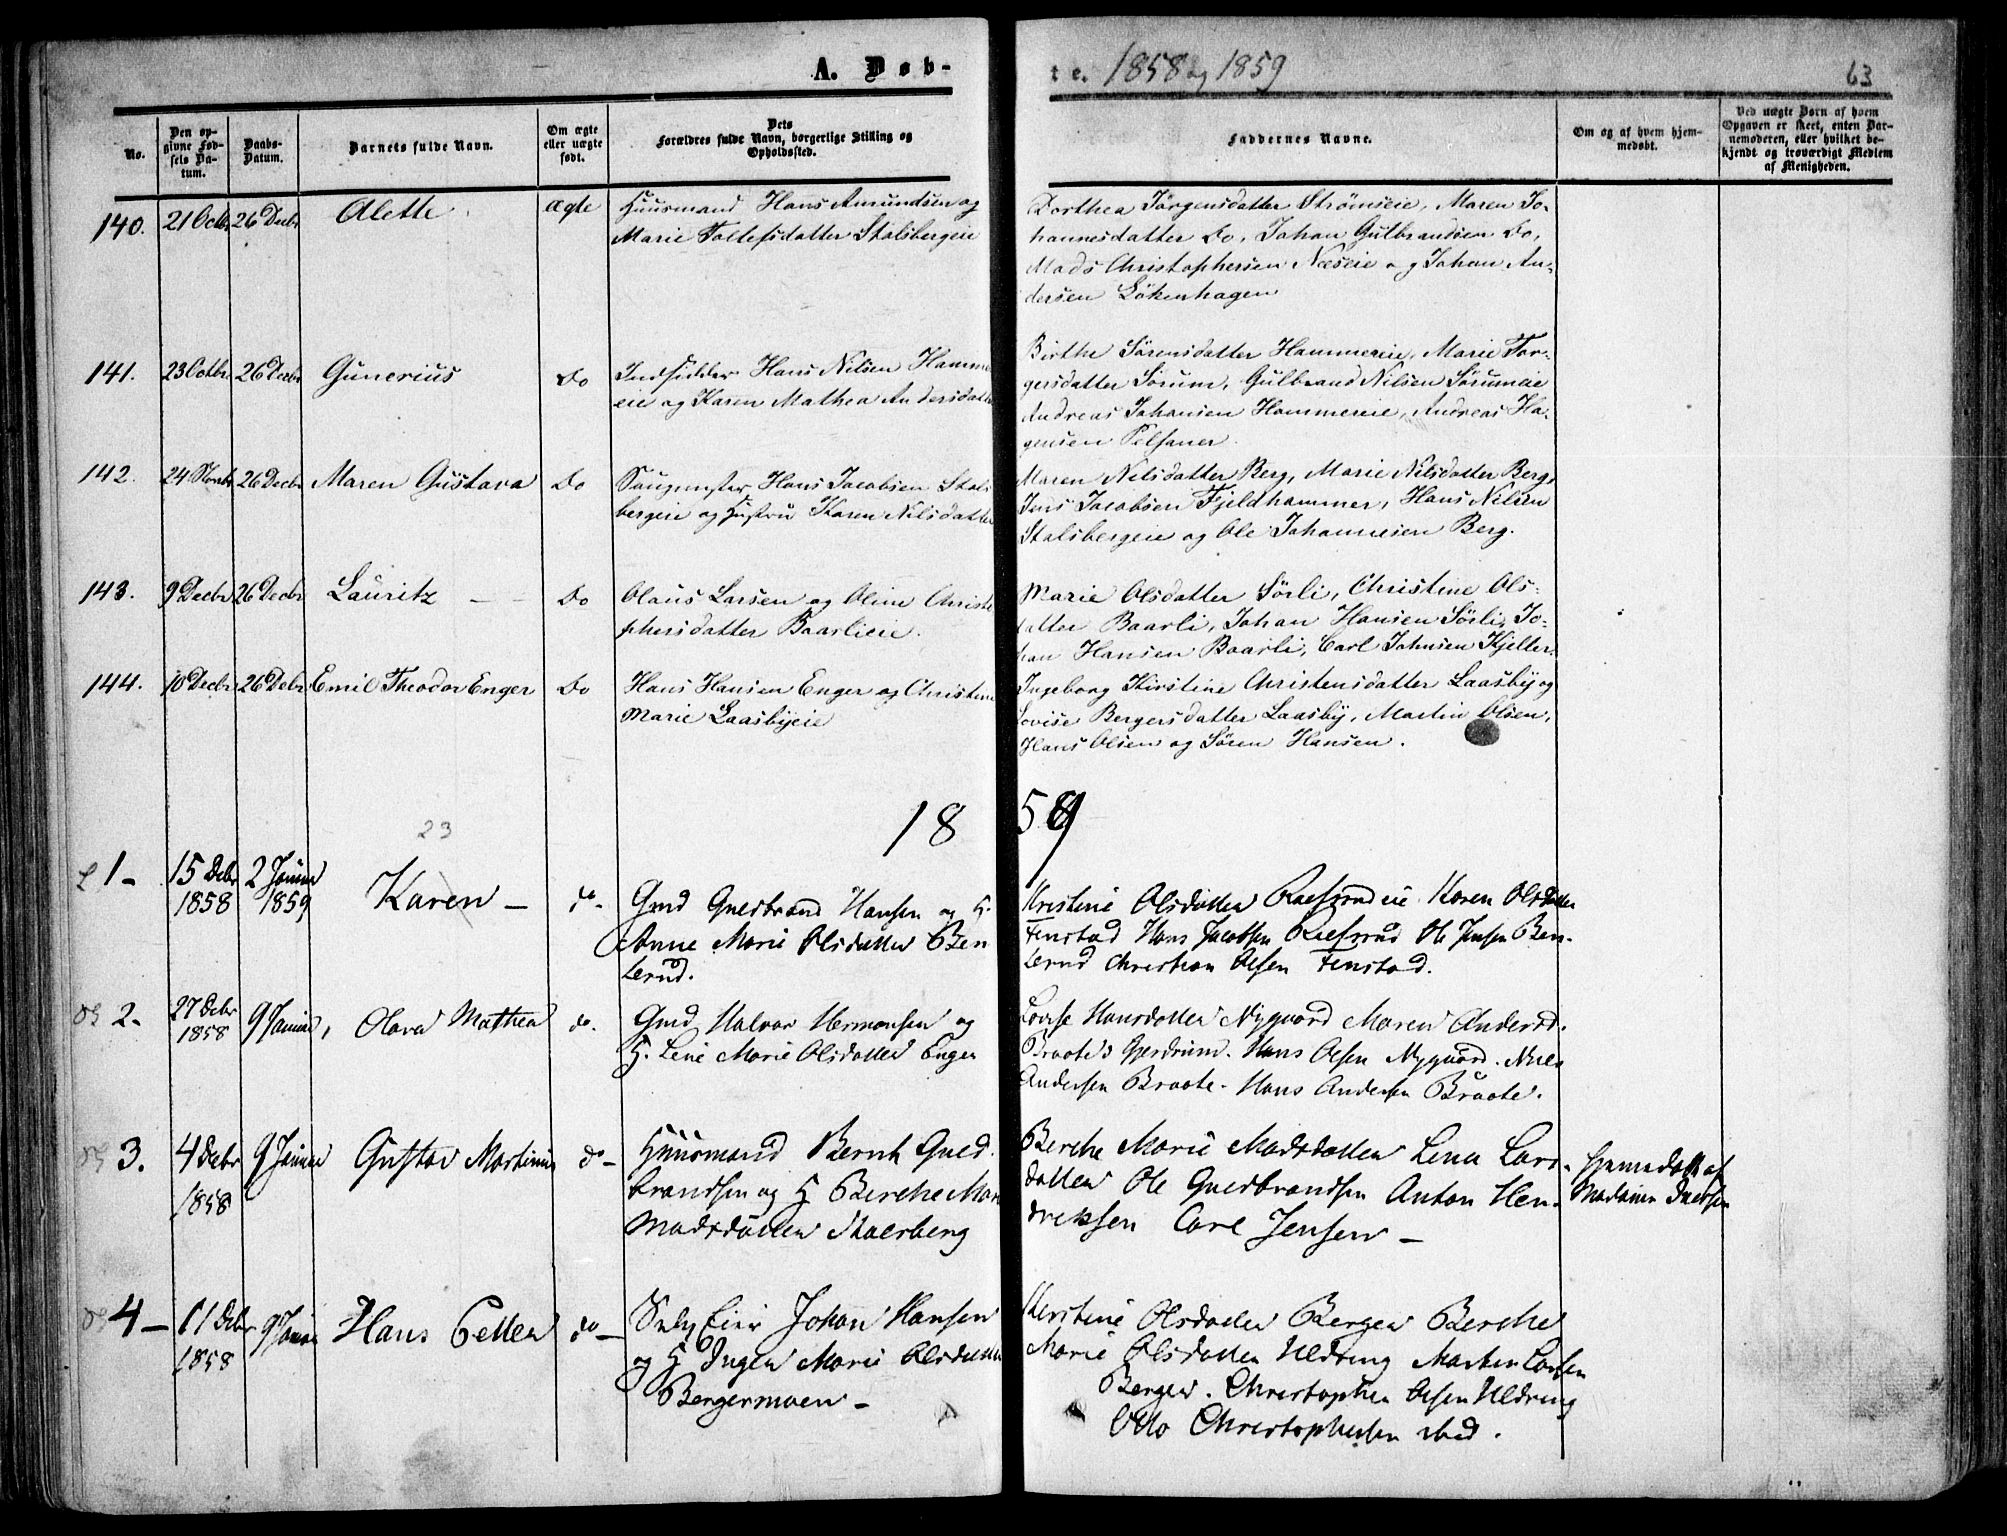 A. Døb-
te. 1858 og 1859
63
No.
Den op-
givne Fød-
sels Da-
tum.
Daabs-
Datum.
Barnets fulde Navn.
Om ægte
eller uægte
født.
Dets
Forældres fulde Navn, borgerlige Stilling og
Opholdssted.
Faddernes Navne.
Om og af hvem hjem-
medøbt.
Ved uægte Børn af hvem
Opgaven er skeet, enten Bar-
nemoderen, eller hvilket be-
kjendt og troværdigt Medlem
af Menigheden.
140. 21 Octbr 26 Decbr Alette ægte
Huusmand Hans Amundsen og
Marie Tollefsdatter Stalsbergeie
Dorthea Jörgensdatter Strömseie, Maren Jo-
hannesdatter do, Johan Gulbrandsen do,
Mads Christophersen Næseie og Johan An-
dersen Lökenhagen
141. 23 Octbr 26 Decbr Gunerius do
Indsidder Hans Nilsen Hamme
eie og Karen Mathea Andersdatte
Birthe Sörensdatter Hammereie, Marie Tor-
gersdatter Sörum, Gulbrand Nilsen Sörumeie
Andreas Johansen Hammereie, Andreas Ha-
gensen
142. 24 Novbr 26 Decbr Maren Gustava do
Saugmester Hans Jacobsen Stals
bergeie og Hustru Karen Nilsdatter
Maren Nilsdatter Berg, Marie Nilsdatter Berg,
Jens Jacobsen Fjeldhammer, Hans Nilsen
Stalsbergeie og Ole Johannesen Berg.
143. 9 Decbr 26 Decbr Lauritz — do
Olaus Larsen og Oline Christo
phersdatter Baarlieie.
Marie Olsdatter Sörli, Christine Ols-
datter Baarli, Johan Hansen Sörli, Jo-
han Hansen Baarli, Carl Johnsen Kjeller.
144. 10 Decbr 26 Debr Emil Theodor Enger do
Hans Hansen Enger og Christine
Marie Laasbyeie
Ingeborg Kirstine Christensdatter Laasby og
Lovise Bergersdatter Laasby, Martin Olsen,
Hans Olsen og Sören Hansen.
23
18 59
1- 15 Debr 2 Januar Karen — do-
1858 1859
Gmd Guldbrand Hansen og H.
Anne Marie Olsdatter Ben
terud.
Kristine Olsdatter Karen Olsdatter
Fenstad Hans Jacobsen Ole Jensen Ben-
terud Christian Olsen Fenstad.
2- 27 Debr 9 Januar, Olava Mathea do.
1858
Gmd Halvor Hermansen og
H. Lene Marie Olsdatter Enger
Lovise Hansdatter Nygaard Maren Andersd.
Braate Gjerdrum. Hans Olsen Nygaard. Niels
Andersen Braate- Hans Andersen Braate.
3. 4 Debr 9 Januar Gustav Martinus do-
1858
Huusmand Bernt Guld-
brandsen og H Berthe Mari
Madsdatter Stalsberg
Berthe Marie Madsdatter Lena Lars-
datter Ole Guldbrandsen Anton Hen-
driksen Carl Jensen —
Hjemmedøbt af
Madame
4- 11 Debr 9 Januar Hans Petter do-
1858
Selveier Johan Hansen
og H Inger Marie Olsdatter
Bergermoen-
Kirstine Olsdatter Berger Berthe
Marie Olsdatter Ueldring Martin Larsen
Berger. Christopher Olsen Ueldring
Otto Christophersen ibid.